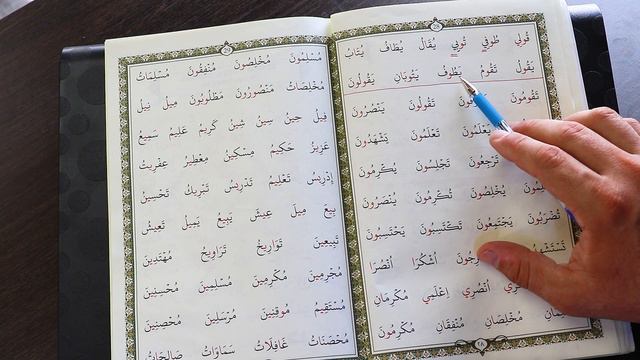 قُولِي طُوفِي تُوبِي يُقَالُ يُطَافُ يُتَابُ
يَقُولُ تَقُومُ يَطُوفُ يَتُوبَانِ يَقُولُونَ
تَقُومُونَ تَقُولُونَ يَنْصُرُونَ
يَعْلَمُونَ تَعْلَمُونَ يَشْهَدُونَ
تَرْجِعُونَ تَجْلِسُونَ يُكْرِمُونَ
يُخْلِصُونَ تُكْرِمُونَ يُنْصَرُونَ
تُضْرَبُونَ يَجْتَمِعُونَ تَكْتَسِبُونَ يَحْتَسِبُونَ
أُشْكُرَا أُنْصُرَا
أُنْصُرِي اِعْلَمِي مُكْرِمَانِ
مُخْلِصَانِ مُنْفِقَانِ مُكْرِمُونَ
مُسْلِمُونَ مُخْلِصُونَ مُنْفِقُونَ مُسْلِمَاتٌ
مُخْلِصَاتٌ مَنْصُورُونَ مَظْلُومُونَ مِيلَ نِيلَ
قِيلَ حِينَ سِينَ شِينُ كَرِيمٌ عَلِيمٌ سَمِيعٌ
عَزِيزٌ حَكِيمٌ مِسْكِينٌ مِعْطِيرٌ عِفْرِيتٌ
إِدْرِيسُ تَعْلِيمٌ تَدْرِيسٌ تَبْرِيكٌ تَحْسِينٌ
بِيعَ مِيلَ عِيشَ يَبِيعُ يَمِيلُ تَعِيشُ
تَبِيعِينَ تَوَارِيخُ تَرَاوِيحُ مُهْتَدِينَ
مُجْرِمِينَ مُكْرِمِينَ مُسْلِمِينَ مُحْسِنِينَ
مُسْتَقِيمٌ مُوقِنِينَ مُرْسَلِينَ مُخْصِنِينَ
مُحْصَنَاتٌ غَافِلَاتٌ سَمَاوَاتٌ صَالِحَاتٌ